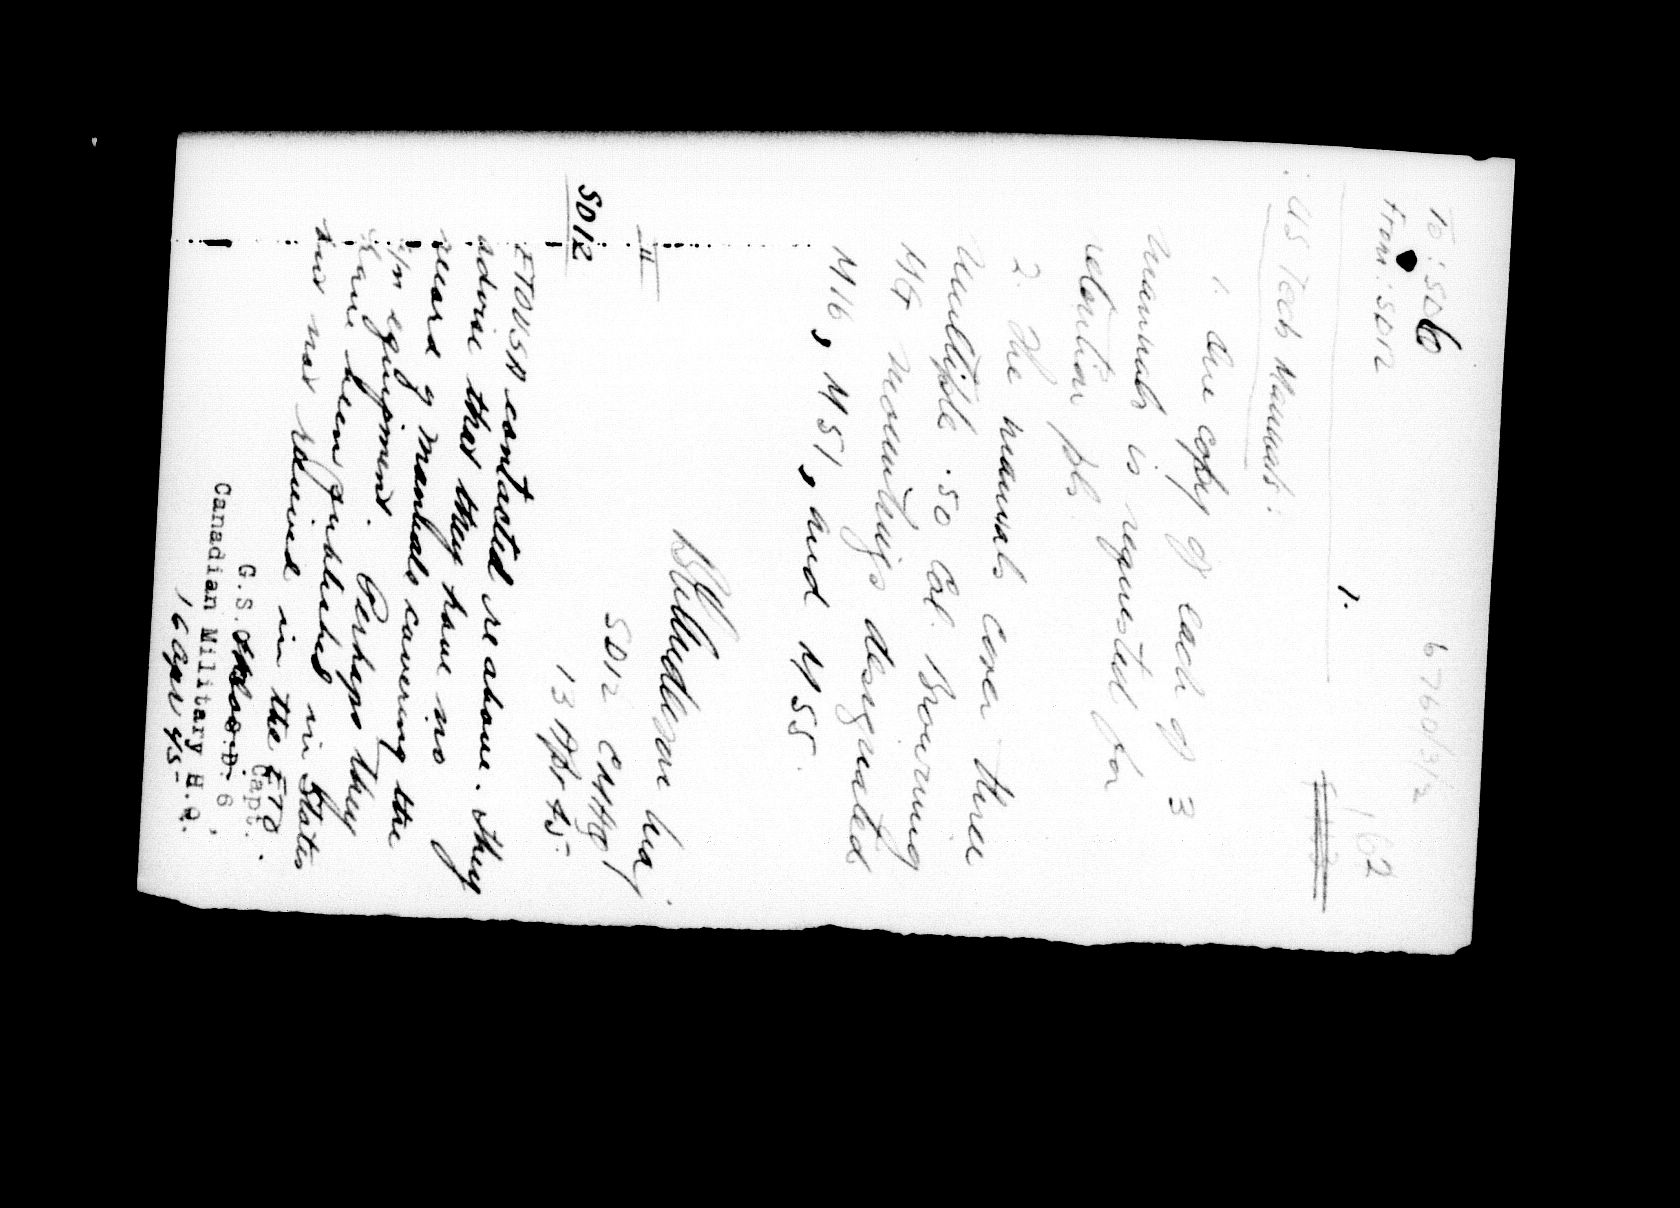 To: SD6
From: SD12
6760/3/2
162
1.
US Tech Manuals:
1. One copy of each of 3
manuals is requested for
retention pls.
2. The manuals cover three
Multiple .50 Cal. Browning
MG mountings designated
M16, M51, and M55.
Maj.
SD12 CMHQ
13 Apr 45.
II
SD12
ETOUSA contacted re above. They
advise that they have no
record of manuals covering the
m/m equipment. Perhaps they
have been published in States
but not received in the ETO.
Capt.
G.S. S.D. 6
Canadian Military H.Q.
16 Apr 45